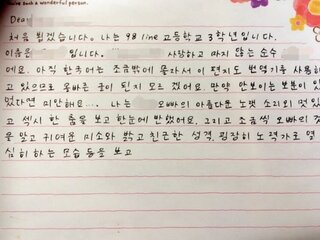 You're such a wonderful person.
Dear
처음 뵙겠습니다. 나는 98 line 고등학교 3학년입니다.
이름은 입니다. 사랑하고 마지 않는 순수
에요. 아직 한국어는 조금밖에 몰라서 이 편지도 번역기를 사용하
고 있으므로 올바른 글이 된지 모르 겠어요. 만약 안보이는 부분이 있
었다면 미안해요... 나는 오빠의 아름다운 노랫 소리의 멋있
고 섹시 한 춤을 보고 한눈에 반했어요. 그리고 조금씩 오빠의 것
을 알고 귀여운 미소와 밝고 친근한 성격. 굉장히 노력가로 열
심히 하는 모습 등을 보고